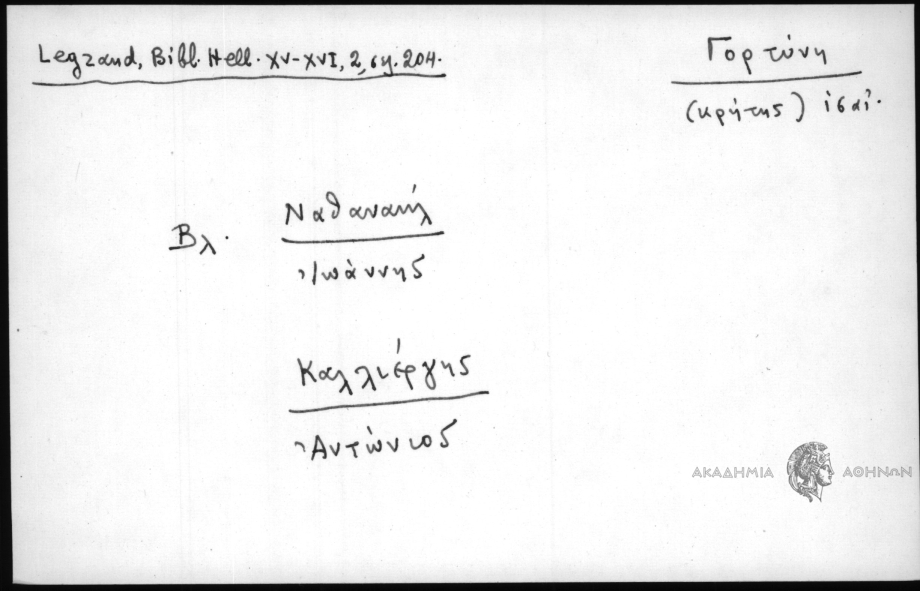 Legrand, Bibl. Hell. XV-XVI, 2, σχ. 204.
Γορτύνη
(Κρήτης)
Βλ. Ναθαναήλ
Ἰωάννης
Καλλιέργης
Ἀντώνιος
ΑΚΑΔΗΜΙΑ ΑΘΗΝΩΝ